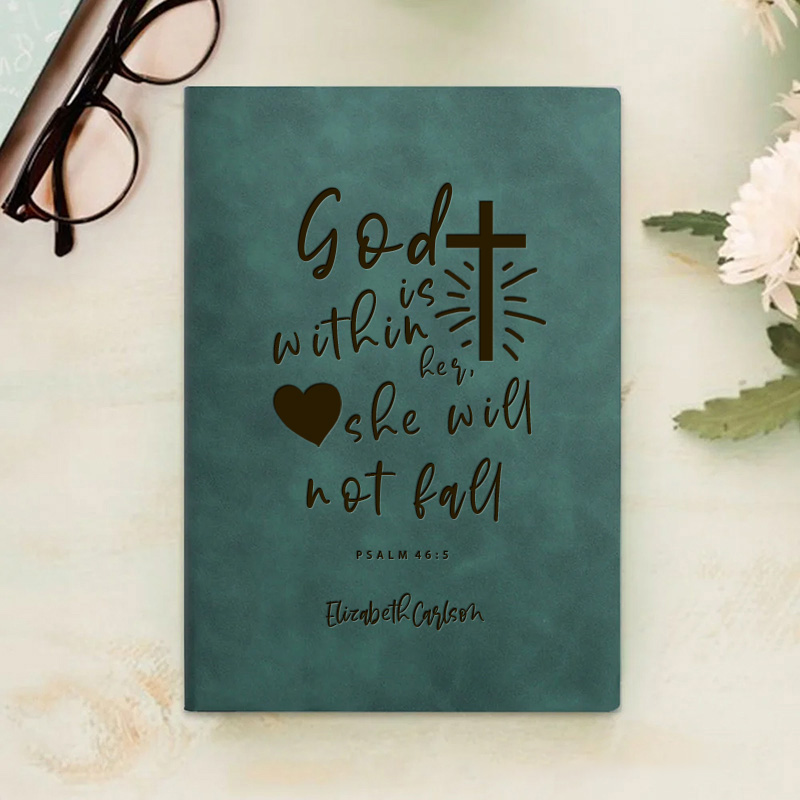 God
is
within
her,
she will
not fall
PSALM 46:5
Elizabeth Carlson